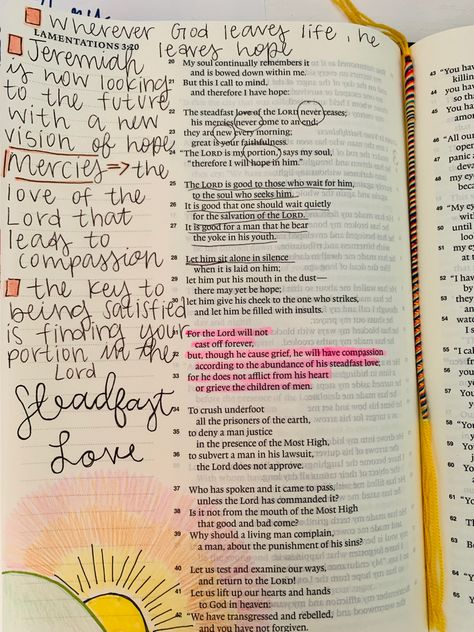 Wherever God leaves life, he
leaves hope
LAMENTATIONS 3:20
Jeremiah
is now looking
to the future
with a new
vision of hope
Mercies → the
love of the
Lord that
leads to
compassion
the key to
being satisfied
is finding your
portion in the
Lord
Steadfast
Love
20 My soul continually remembers it
and is bowed down within me.
21 But this I call to mind,
and therefore I have hope:
22 The steadfast love of the LORD never ceases;
his mercies never come to an end;
23 they are new every morning;
great is your faithfulness.
24 "The LORD is my portion," says my soul,
"therefore I will hope in him."
25 The LORD is good to those who wait for him,
to the soul who seeks him.
26 It is good that one should wait quietly
for the salvation of the LORD.
27 It is good for a man that he bear
the yoke in his youth.
28 Let him sit alone in silence
when it is laid on him;
29 let him put his mouth in the dust—
there may yet be hope;
30 let him give his cheek to the one who strikes,
and let him be filled with insults.
31 For the Lord will not
cast off forever,
32 but, though he cause grief, he will have compassion
according to the abundance of his steadfast love;
33 for he does not afflict from his heart
or grieve the children of men.
34 To crush underfoot
all the prisoners of the earth,
35 to deny a man justice
in the presence of the Most High,
36 to subvert a man in his lawsuit,
the Lord does not approve.
37 Who has spoken and it came to pass,
unless the Lord has commanded it?
38 Is it not from the mouth of the Most High
that good and bad come?
39 Why should a living man complain,
a man, about the punishment of his sins?
40 Let us test and examine our ways,
and return to the LORD!
41 Let us lift up our hearts and hands
to God in heaven:
42 "We have transgressed and rebelled,
and you have not forgiven.
43 "You
44
45
46 "All
47
48
49 "My
50
51
52 "I
53
54
55 "I
56
57
58 "You
59
60
61 "You
62
63
64 "You
65
66